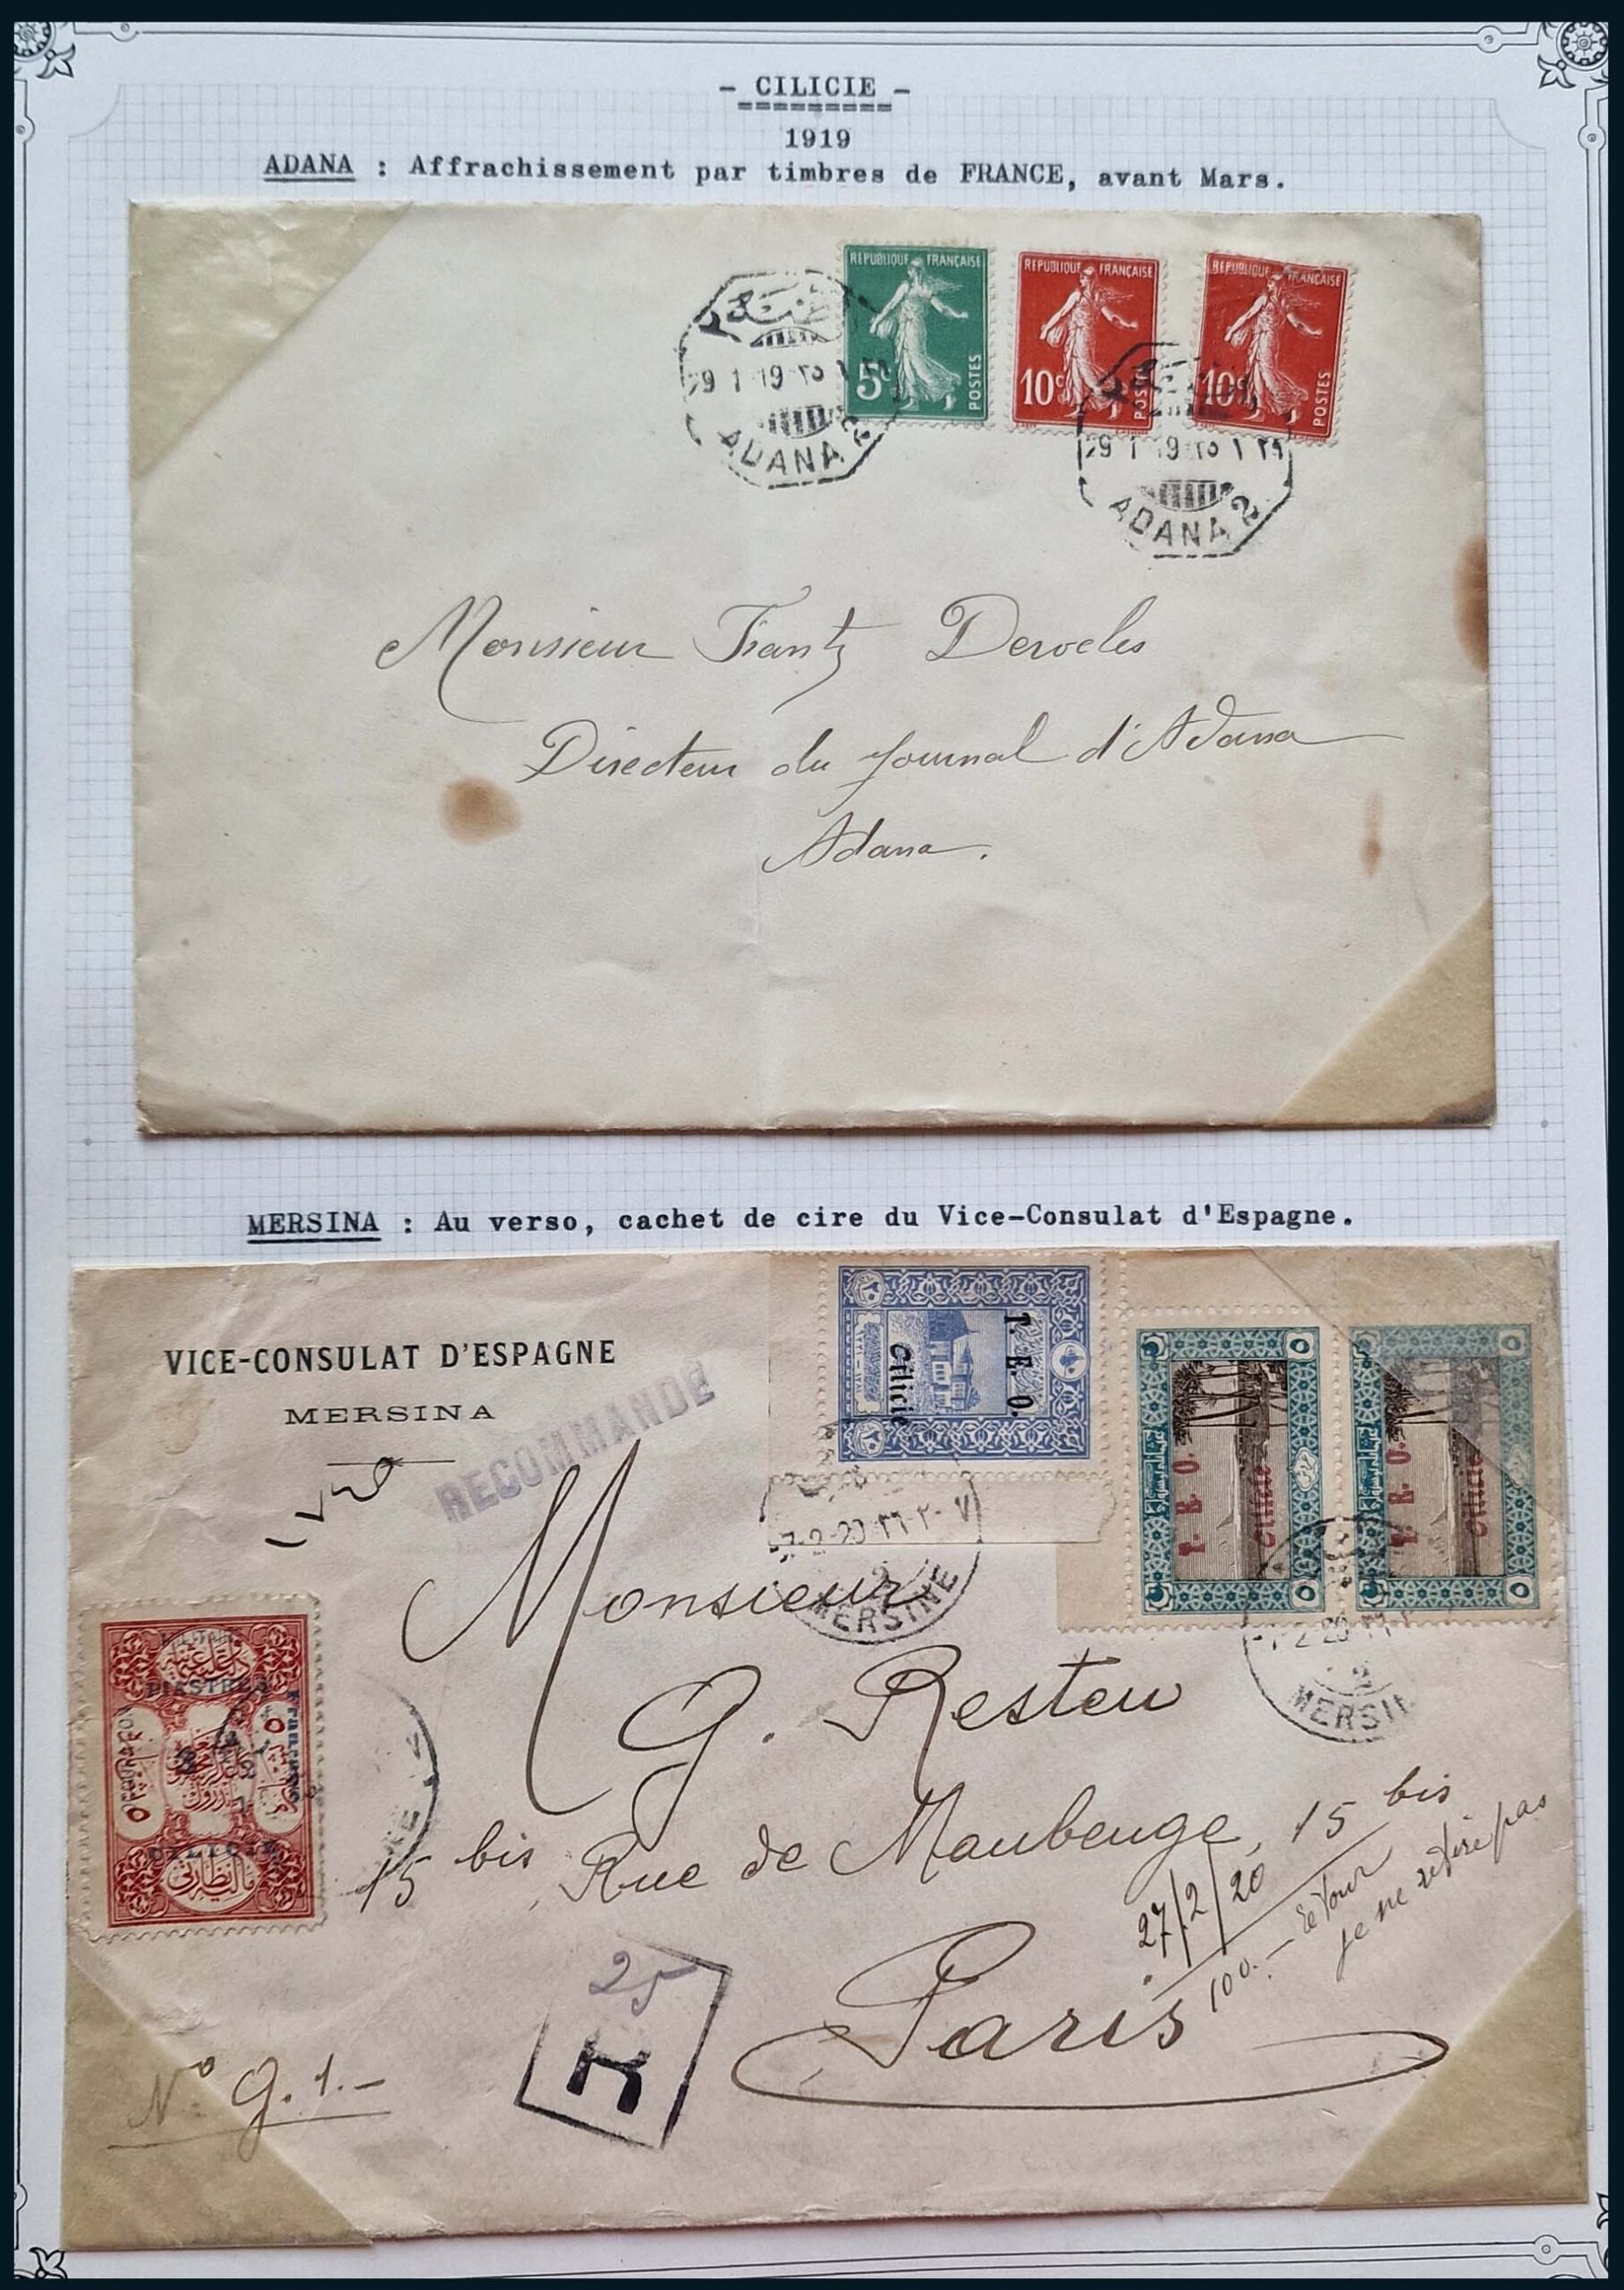 - CILICIE -
1919
ADANA : Affrachissement par timbres de FRANCE, avant Mars.
REPUBLIQUE FRANÇAISE
5c
POSTES
REPUBLIQUE FRANÇAISE
10c
POSTES
REPUBLIQUE FRANÇAISE
10c
POSTES
29 1 19 ٢٥ ١
ADANA 2
29 1 19 ٣٥ ١ ٢٩
ADANA 2
Monsieur Frantz
Directeur du Journal d'Adana
Adana.
MERSINA : Au verso, cachet de cire du Vice-Consulat d'Espagne.
VICE-CONSULAT D'ESPAGNE
MERSINA
RECOMMANDE
T. E. O.
Cilicie
T. E. O.
Cilicie
T. E. O.
Cilicie
7-2-20 ٣٦-٢-٧
2
MERSINE
7-2-20
2
MERSIN
PIASTRES
CILICIE
Monsieur
G. Resteu
15 bis Rue de Maubeuge, 15 bis
Paris
27/2/20
100.- retour
je ne
25
R
No G. 1.-